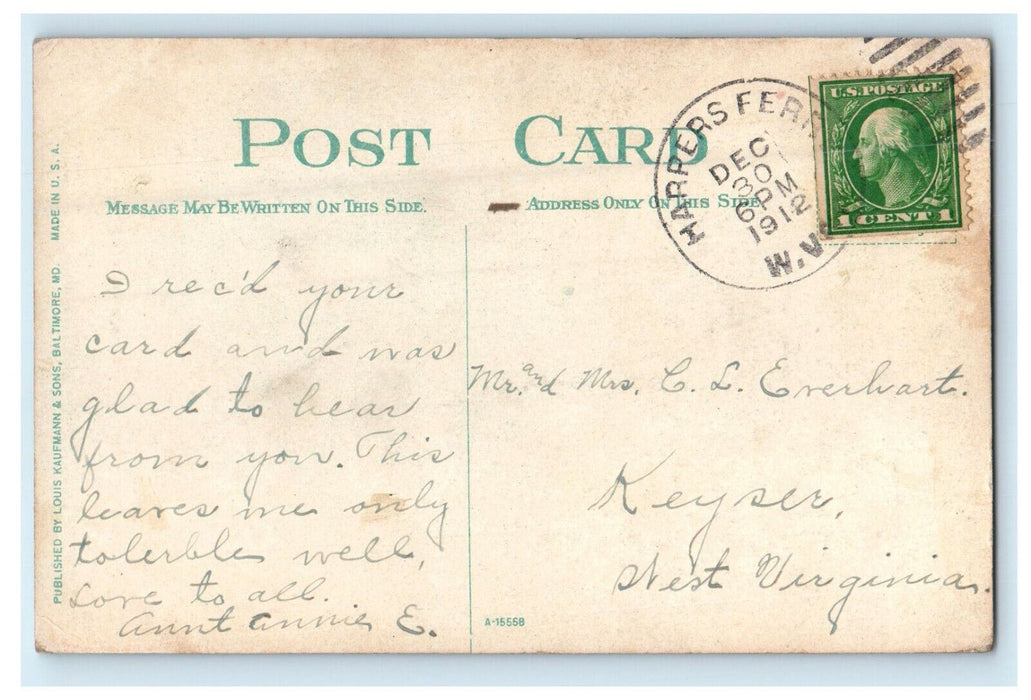 POST CARD
MESSAGE MAY BE WRITTEN ON THIS SIDE.
ADDRESS ONLY ON THIS SIDE
PUBLISHED BY LOUIS KAUFMANN & SONS, BALTIMORE, MD. MADE IN U.S.A.
HARPERS FER
DEC
30
6 PM
1912
W.V
U.S. POSTAGE
1 CENT 1
I rec'd your
card and was
glad to hear
from you. This
leaves me only
tolerble well,
Love to all.
Aunt Annie E.
Mr. and Mrs. C. L. Everhart.
Keyser,
West Virginia.
A-15568